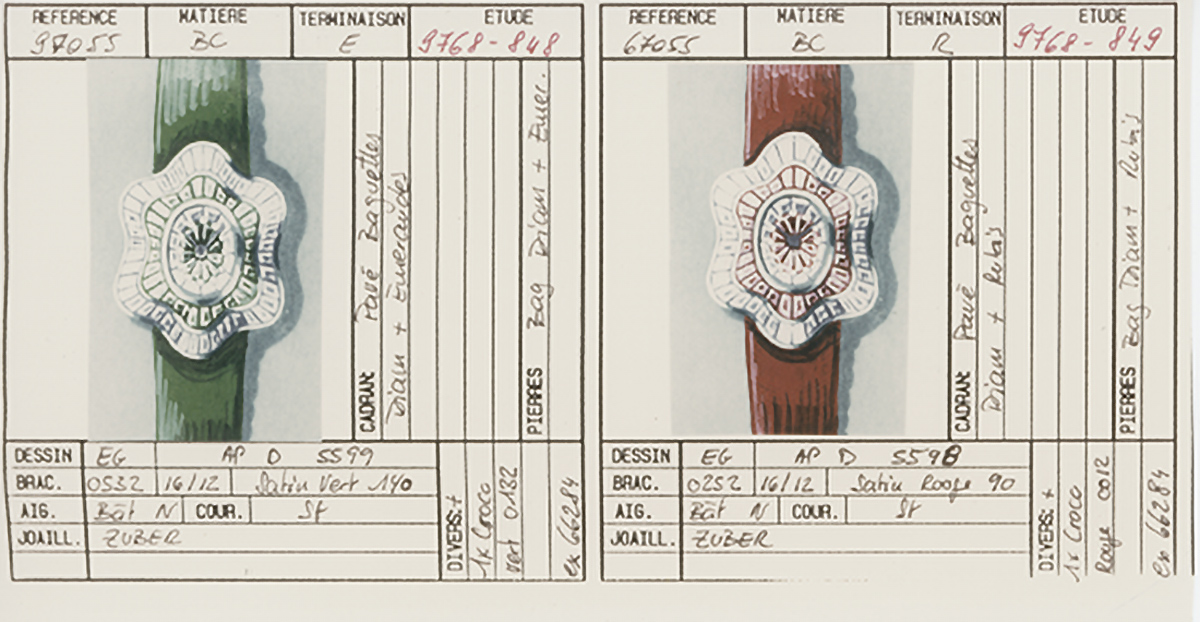 REFERENCE MATIERE TERMINAISON ETUDE
97055 BC E 9768-848
CADRAN Pavé Baguettes
Diam + Emeraudes
PIERRES Bag Diam + Emer.
DESSIN EG AP D 5599
BRAC. 0532 16/12 Satin Vert 140
AIG. Bât N COUR. St
JOAILL. ZUBER
DIVERS: +
1x Croco
Vert 0132
ex 66284
REFERENCE MATIERE TERMINAISON ETUDE
67055 BC R 9768-849
CADRAN Pavé Baguettes
Diam + Rubis
PIERRES Bag Diam + Rubis
DESSIN EG AP D 5598
BRAC. 0252 16/12 Satin Rouge 90
AIG. Bât N COUR. St
JOAILL. ZUBER
DIVERS: +
1x Croco
Rouge 0012
ex 66284